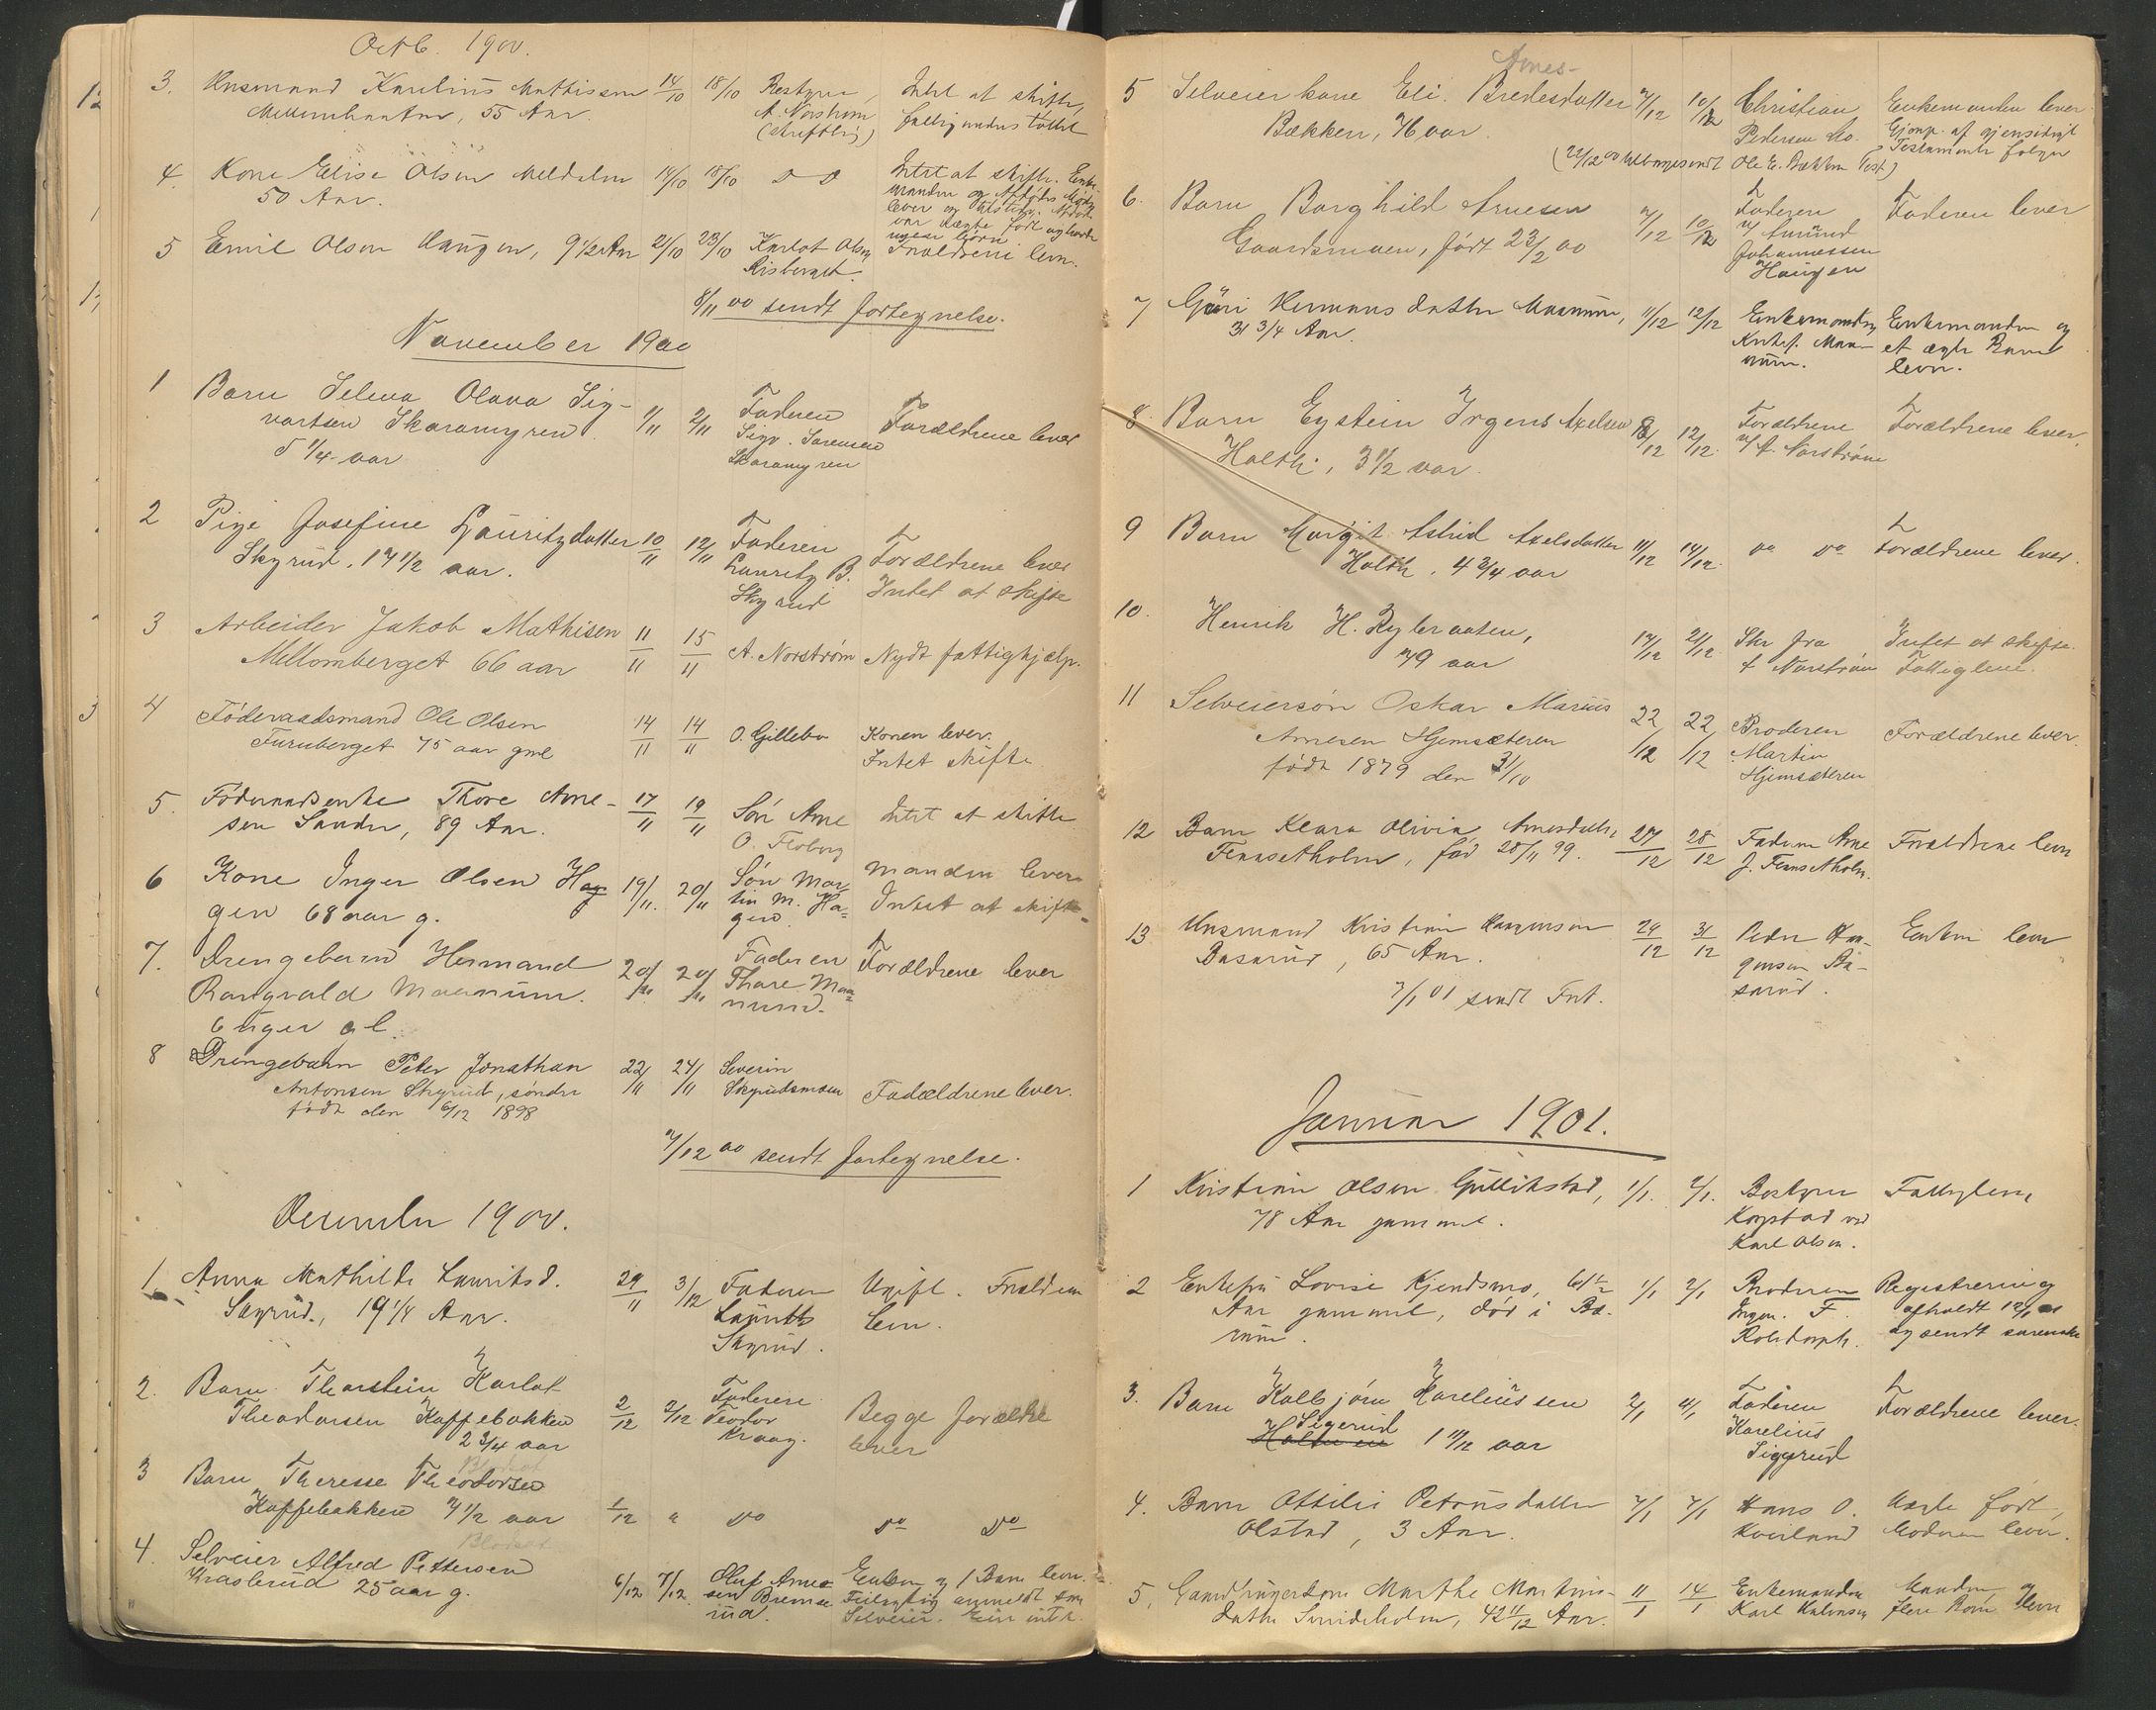 Octb. 1900.
3. Husmand Karelius Mathisen 14/10 18/10 Bestyrer
55 Aar. A. Norstrøm
(skriftlig)
Intet at skifte,
4. Kone Elise Olsen 14/10 18/10 Do Do
50 Aar.
Intet at skifte. Enke-
manden og
5 Emil Olsen Haugen, 9 1/2 Aar 21/10 23/10 Karlot Olsen
Risberget. Forældrene lever.
8/11 00 sendt fortegnelse.
November 1900
1 Barn Selma Olava Sig-
vartsen Skaramyren
5 1/4 aar
1/11 2/11 Faderen
Sigv. Sørensen
Skaramyren
Forældrene lever
2 Pige Josefine Lauritzdatter
Skyrud. 17 1/2 aar.
10/11 12/11 Faderen
Lauritz B.
Skyrud
Forældrene lever
Intet at skifte
3 Arbeider Jakob Mathisen
Mellomberget 66 aar
11/11 15/11 A. Norstrøm Nydt fattighjælp.
4 Föderaadsmand Ole Olsen
Furuberget 75 aar gml
14/11 14/11 O. Gillebo Konen lever.
Intet skifte
5. Föderaadsenke Thore Arne-
sen Sander, 89 Aar.
17/11 19/11 Sön Arne
O. Floberg
Intet at skifte
6 Kone Inger Olsen Ha
gen 68 aar g.
19/11. 20/11 Søn Mar-
tin M. Ha-
gen
Manden lever
Intet at skifte
7. Drengebarn Hermand
Rangvald Maanum.
6 uger gl.
20/11 20/11 Faderen
Thore Maa-
num.
Forældrene lever
8 Drengebarn Peter Jonathan
Antonsen Skyrud, söndre
födt den 6/12 1898
22/11 24/11 Severin
Skyrudsmoen
Fadældrene lever.
7/12 00 sendt fortegnelse.
December 1900.
1 Anna Mathilde Lauritsd.
Skyrud., 19 1/4 Aar.
29/11 3/12 Faderen
Laurits
Skyrud.
Ugift. Forældrene
lever.
2. Barn Thorstein Karlot
Theodorsen Kaffebakken
2 3/4 aar
2/12 7/12 Faderen
Teodor
Kraag.
Begge forældre
lever
3 Barn Theresse Theodorsen
Kaffebakken 7 1/2 aar
1/12 " Do Do Do
4. Selveier Alfred Pettersen
Kraslerud 25 aar g.
6/12 7/12. Oluf Arne-
sen Bremse-
rud.
Enken og 1 Barn lever.
Feilagtig anmeldt som
Selveier. Eier intet.
Arnes-
5 Selveierkone Eli Bredesdatter
Bækken, 76 aar.
7/12 10/12 Christian
Pedersen Mo.
Enkemanden lever.
Gjenp. af gjensidigt
Testamente følger
(22/12 00 tilbagesendt Ole E. Bækken Test)
6. Barn Borghild Arnesen
Gaardsmoen, født 23/2 00
7/12 10/12 Faderen
v/ Amund
Johannessen
Haugen
Faderen lever
7 Guri Hermansdatter Maanum,
31 3/4 Aar.
11/12 12/12 Enkemanden
Kristof. Maa-
num.
Enkemanden og
et ægte Barn
lever.
8. Barn Eystein Jrgens Axelsen
Holth, 3 1/2 aar.
8/12 12/12. Forældrene
v/ A. Norstrøm
Forældrene lever.
9 Barn Margit Astrid Axelsdatter
Holth. 4 3/4 aar
11/12 14/12. Do Do Forældrene lever.
10. Henrik H. Rybraaten,
79 aar
17/12 21/12 Skr fra
A Norstrøm
Intet at skifte.
Fattiglem.
11 Selveiersön Oskar Marius
Arnesen Hjemsæteren
födt 1879 den 31/10
22/12 22/12 Broderen
Martin
Hjemsæteren
Forældrene lever.
12 Barn Klara Olivia Arnesdatter
Fennsetholen, fød 28/11 99.
27/12 28/12 Faderen Arne
J. Fennsetholen.
Forældrene lever
13 Husmand Kristian Haagensen
Basarud, 65 Aar.
29/12 31/12 Peder Haa-
gensen Ba-
sarud.
Enken lever
7/1 01 sendt Fort.
Januar 1901.
1 Kristian Olsen Gullikstad,
78 Aar gammel.
1/1. 2/1. Bestyrer
Kogstad ved
Karl Olsen.
Fattiglem
2 Enkefru Lovise Kjendsmo, 61 1/2
Aar gammel, död i Bæ-
rum.
1/1 2/1 Broderen
F.
Registrering
afholdt 12/1 01
og sendt sorensk
3. Barn Kolbjörn Kareliussen
Sigerud
Holteren 1 11/12 aar
2/1 4/1 Faderen
Karelius
Siggerud
Forældrene lever.
4. Barn Ottilie Petrusdatter
Olstad, 3 Aar.
7/1 7/1 Hans O.
Kverland
Uægte født,
Moderen lever.
5. Gaardbrugerkone Marthe Martins-
datter Smideholen, 42 11/12 Aar.
11/1 14/1 Enkemanden
Karl Halvorsen
Manden og
flere Børn lever